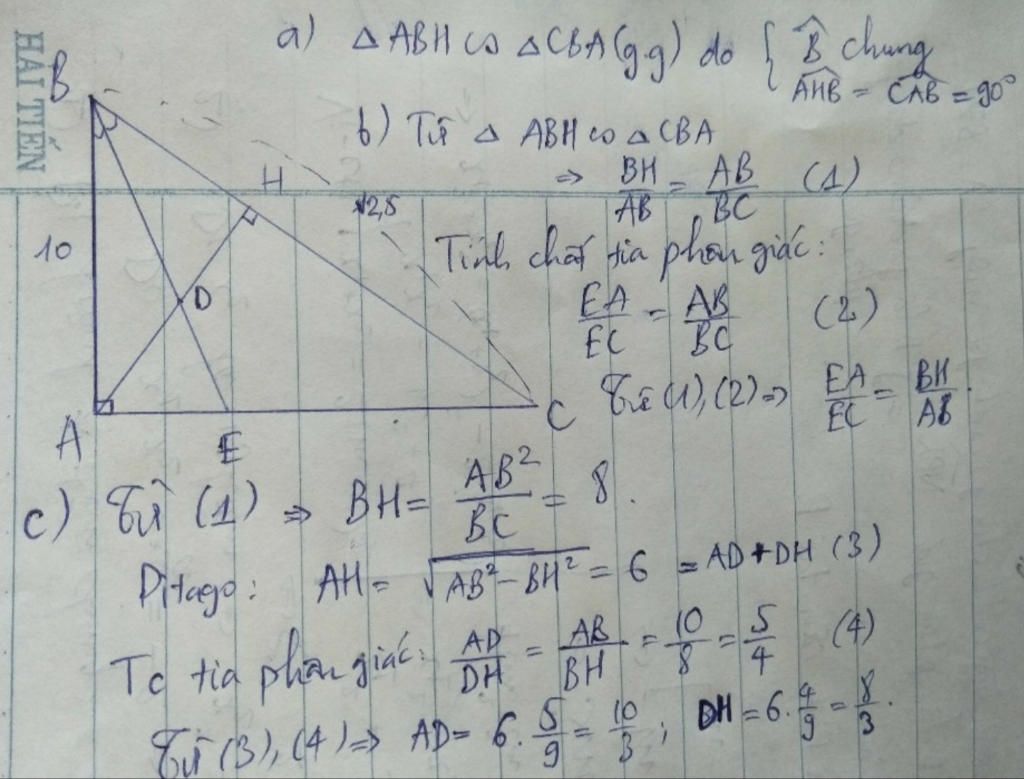 HẢI TIẾN
a) △ABH ∽ △CBA (g.g) do { B̂ chung
AHB = CAB = 90°
b) Từ △ ABH ∽ △CBA
⇒ BH/AB = AB/BC (1)
Tính chất tia phân giác:
EA/EC = AB/BC (2)
Từ (1), (2) ⇒ EA/EC = BH/AB.
B
H
12,5
10
D
A
E
C
c) Từ (1) ⇒ BH = AB²/BC = 8.
Pitago: AH = √(AB² - BH²) = 6 = AD + DH (3)
Tc tia phân giác: AD/DH = AB/BH = 10/8 = 5/4 (4)
Từ (3), (4) ⇒ AD = 6. 5/9 = 10/3 ; DH = 6. 4/9 = 8/3.